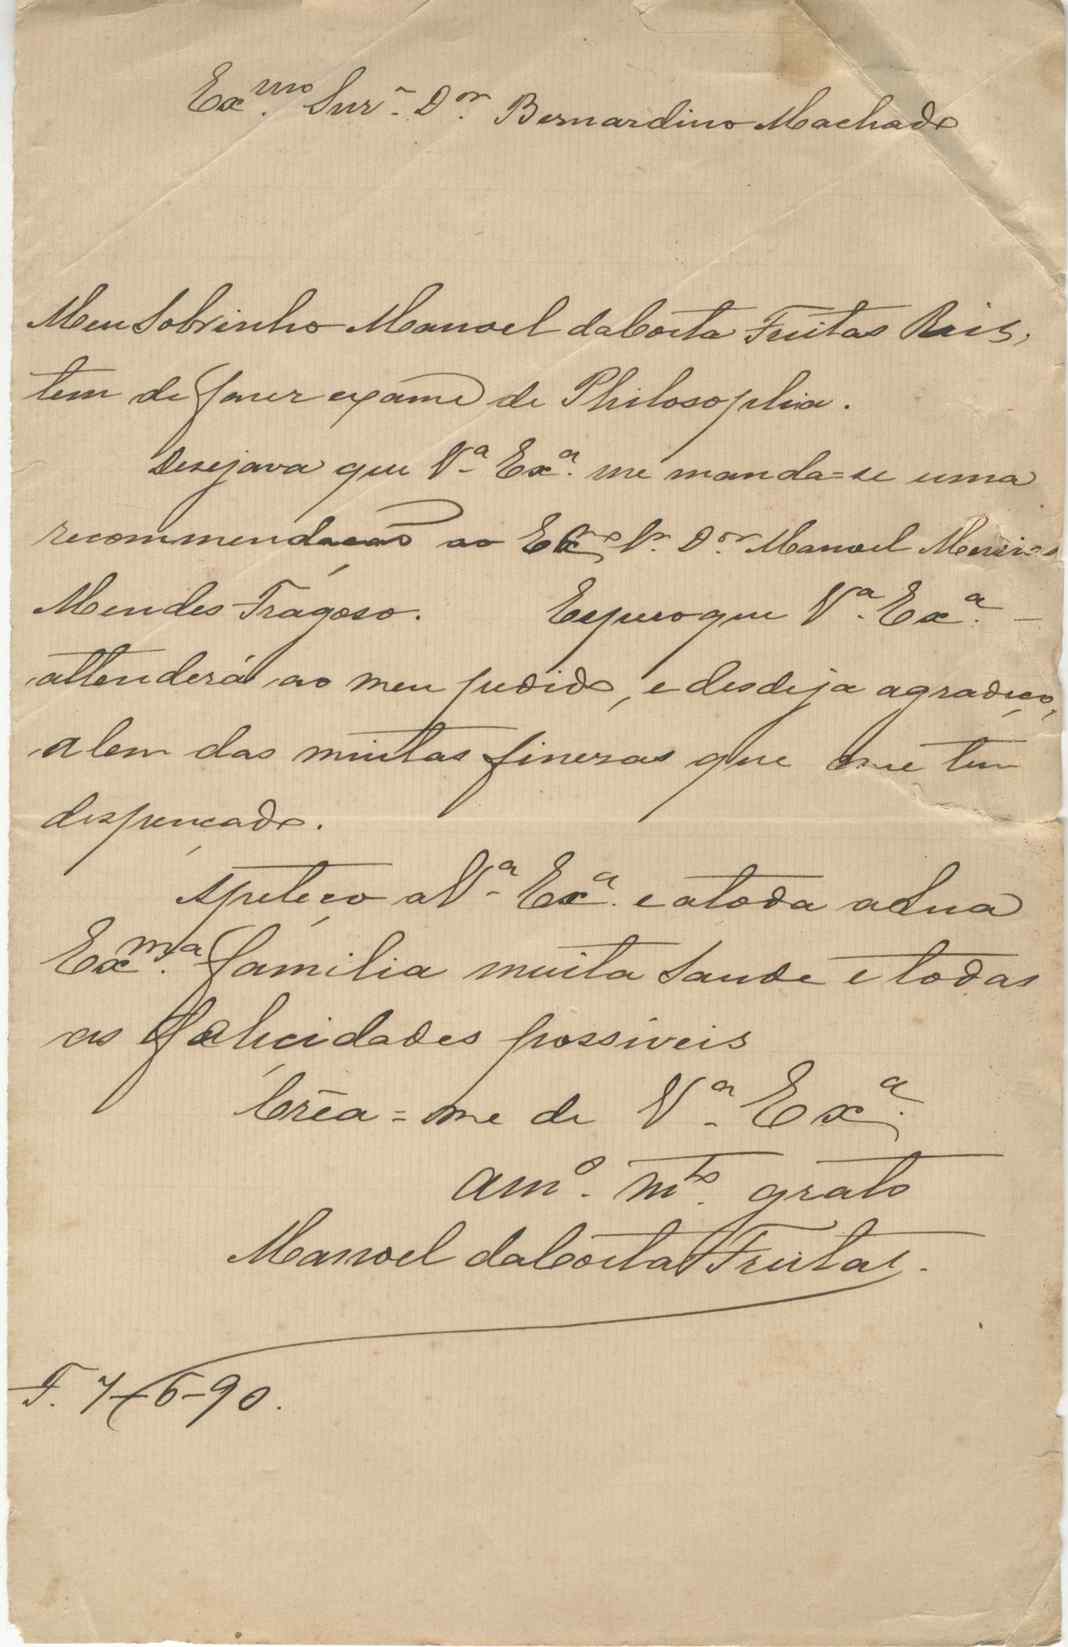 Ex.mo Snr. Dor. Bernardino Machado
Meu Sobrinho Manoel da Costa Freitas Reis,
tem de fazer exame de Philosophia.
Desejava que Va. Exa. me manda=se uma
recommendação ao Exmo Sr. Dor. Manoel
Mendes Fragoso. Espero que Va. Exa. -
attenderá ao meu pedido, e desdeja agradeço,
alem das muitas finezas que me tem
despençado.
Apeteço a Va. Exa. e a toda a Sua
Exma. familia muita Saude e todas
as felicidades possiveis
Crêa=me de Va. Exa.
amo. mto. grato
Manoel da Costa Freitas.
F. 7-6-90.